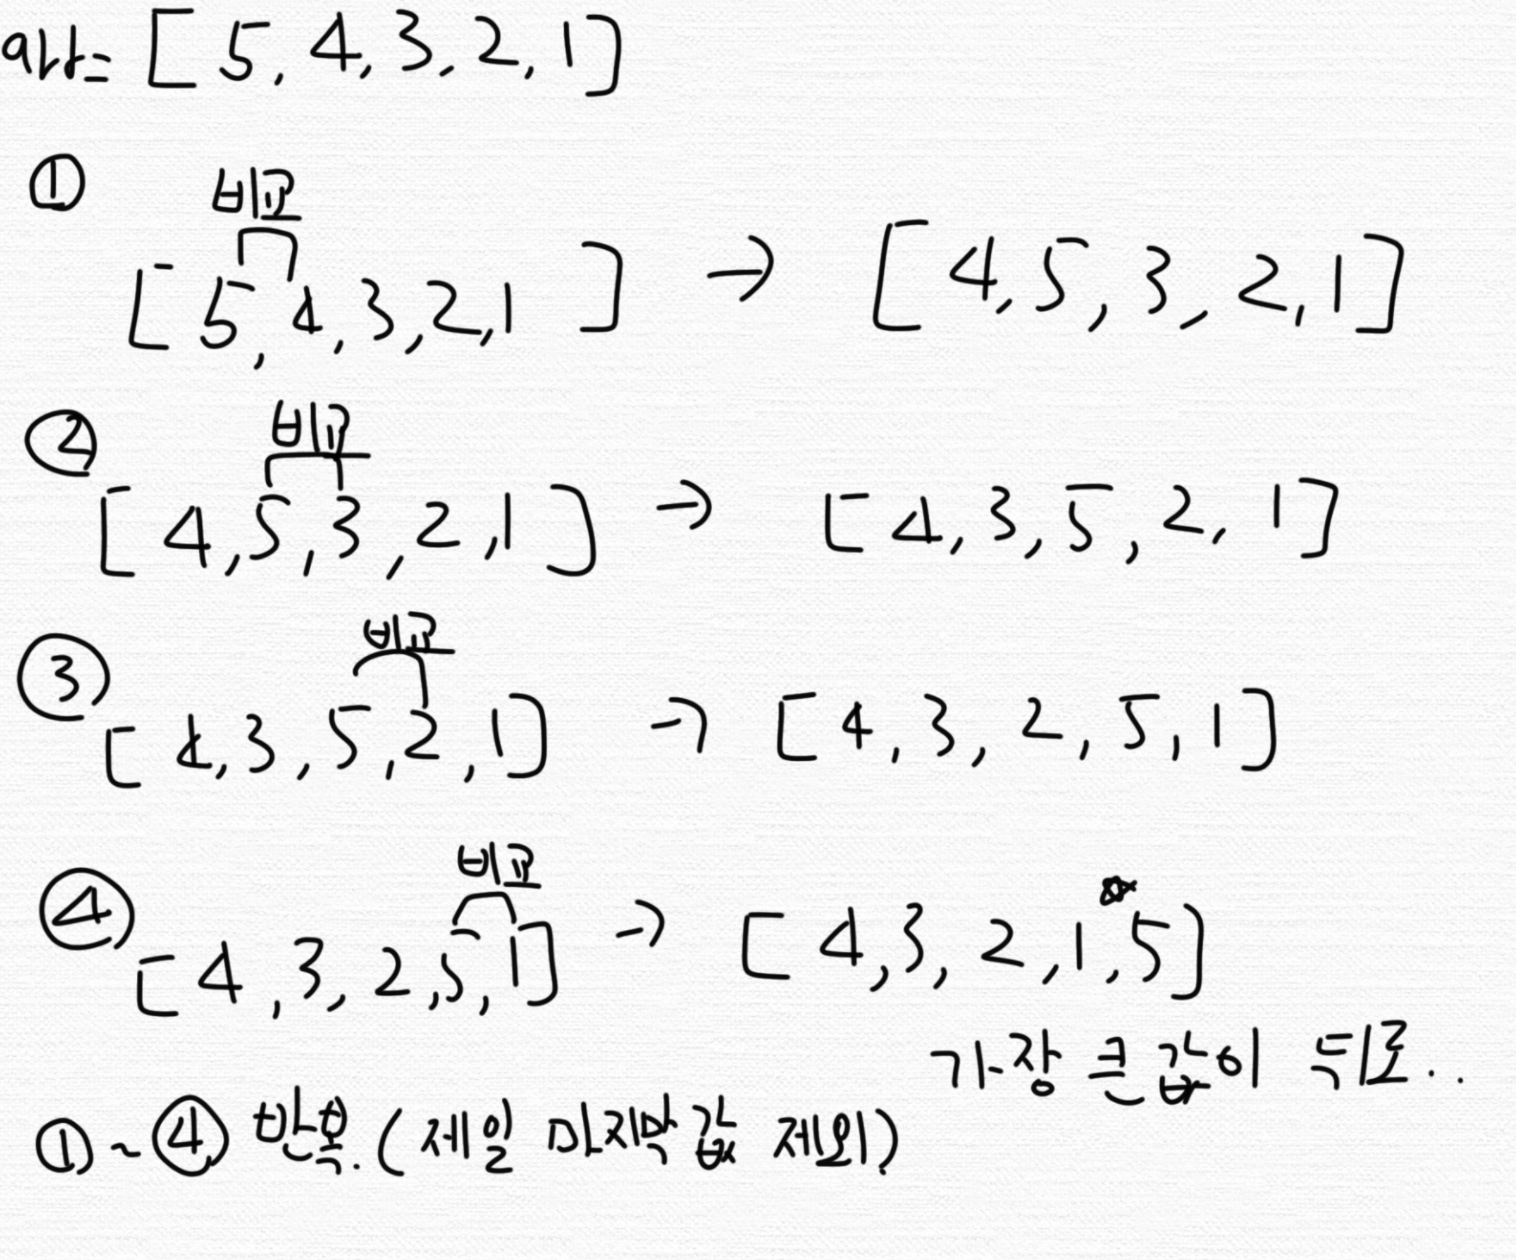 arr= [5, 4, 3, 2, 1]
①
비교
[5, 4, 3, 2, 1] → [4, 5, 3, 2, 1]
②
비교
[4, 5, 3, 2, 1] → [4, 3, 5, 2, 1]
③
비교
[4, 3, 5, 2, 1] → [4, 3, 2, 5, 1]
④
비교
[4, 3, 2, 5, 1] → [4, 3, 2, 1, 5]
가장 큰 값이 뒤로..
① ~ ④ 반복. (제일 마지막 값 제외)